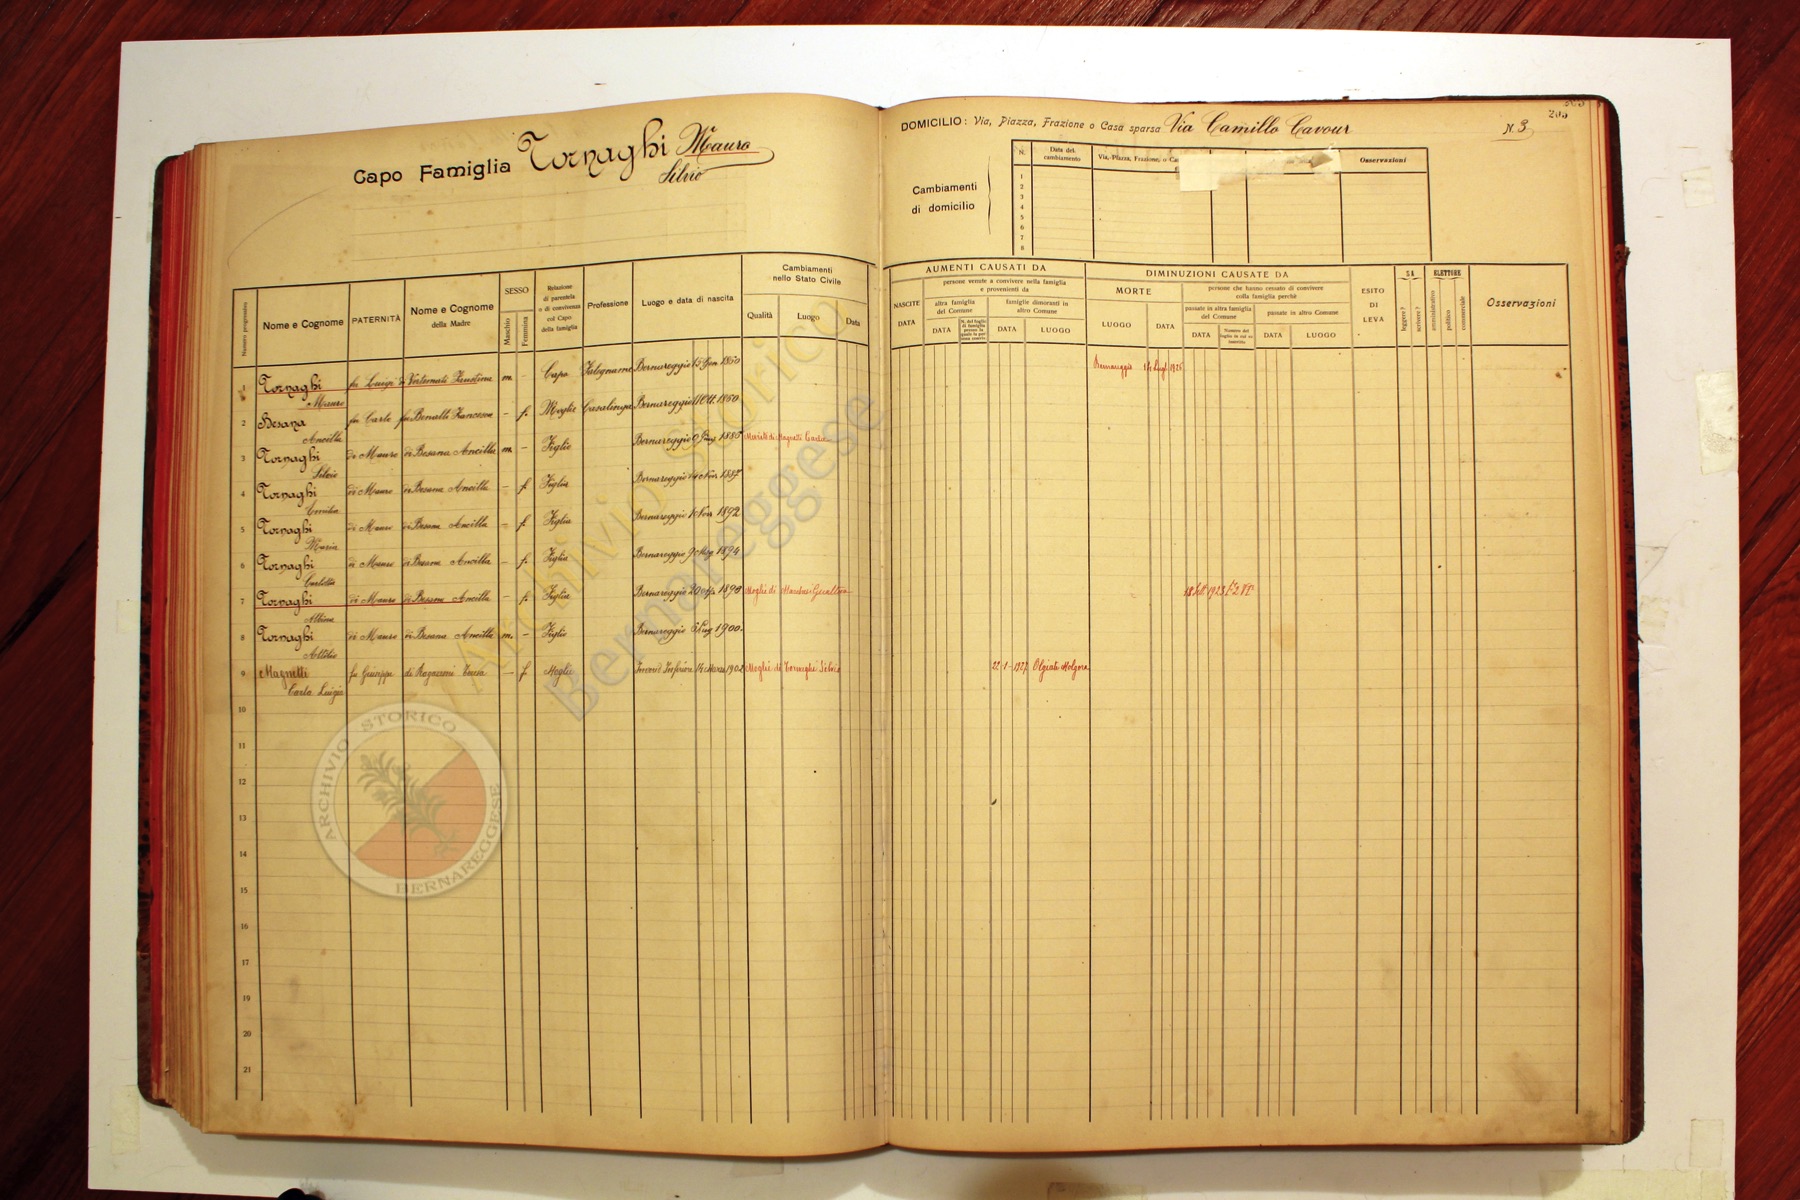 Capo Famiglia Tornaghi Mauro
Silvio
DOMICILIO: Via, Piazza, Frazione o Casa sparsa Via Camillo Cavour N. 3
203
Cambiamenti
di domicilio
N. Data del cambiamento Via, Piazza, Frazione, o Osservazioni
1
2
3
4
5
6
7
8
Numero progressivo
Nome e Cognome
PATERNITÀ
Nome e Cognome
della Madre
SESSO
Maschio
Femmina
Relazione
di parentela
o di convivenza
col Capo
della famiglia
Professione
Luogo e data di nascita
Cambiamenti
nello Stato Civile
Qualità
Luogo
Data
AUMENTI CAUSATI DA
NASCITE
DATA
persone venute a convivere nella famiglia
e provenienti da
altra famiglia
del Comune
DATA
famiglie dimoranti in
altro Comune
DATA
LUOGO
DIMINUZIONI CAUSATE DA
MORTE
LUOGO
DATA
persone che hanno cessato di convivere
colla famiglia perchè
passate in altra famiglia
del Comune
DATA
passate in altro Comune
DATA
LUOGO
ESITO
DI
LEVA
SA
leggere?
scrivere?
ELETTORE
amministrativo
politico
commerciale
Osservazioni
1 Tornaghi Mauro fu Luigi di Faustina m. - Capo Falegname Bernareggio 15 Gen 1850 Bernareggio
2 Besana Ancilla fu Carlo fu Francesca - f. Moglie Casalinga Bernareggio 1860
3 Tornaghi Silvio di Mauro di Besana Ancilla m. - Figlio Bernareggio 9 1885 Marito di Magnetti
4 Tornaghi di Mauro di Besana Ancilla - f. Figlia Bernareggio 14 Nov 1887
5 Tornaghi Maria di Mauro di Besana Ancilla - f. Figlia Bernareggio 1 Nov 1892
6 Tornaghi Carlotta di Mauro di Besana Ancilla - f. Figlia Bernareggio 9 1894
7 Tornaghi Albina di Mauro di Besana Ancilla - f. Figlia Bernareggio 20 Moglie di 18 Sett 1923
8 Tornaghi Attilio di Mauro di Besana Ancilla m. - Figlio Bernareggio 1900
9 Magnetti Carla Luigia fu Giuseppe di - f. Moglie Moglie di Tornaghi Silvio 22-1-1927 Olgiate Molgora
10
11
12
13
14
15
16
17
18
19
20
21
Archivio Storico
Bernareggese
ARCHIVIO STORICO
BERNAREGGESE